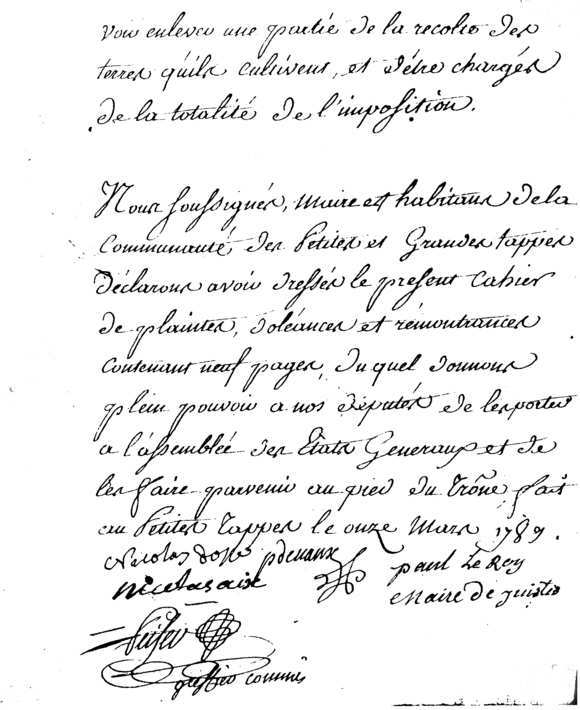 voir enlever une partie de la recolte des
terres quils cultivent, et d'être chargés
de la totalité de l'imposition.
Nous soussignés, maire et habitans de la
Communauté, des Petites et Grandes tappes
déclarons avoir dressés le present Cahier
de plaintes, doléances et rémontrances
contenant neuf pages, du quel donnons
plein pouvoir a nos députés de les porter
a l'assemblée des Etats Generaux et de
les faire parvenir au pied du Trône fait
au Petites Tappes le onze Mars 1789.
Nicolas
paul Le Roy
nicolas aix
Maire de justice
greffier commis